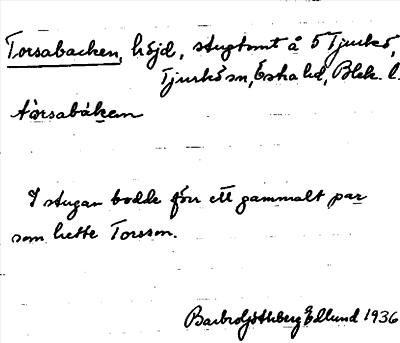 Torsabacken, höjd, stugtomt å S Tjurkö,
Tjurkö sn, Östra hd, Blek. l.
tòrsabákan
I stugan bodde förr ett gammalt par
som hette Torsson.
Barbro Götherberg Edlund 1936